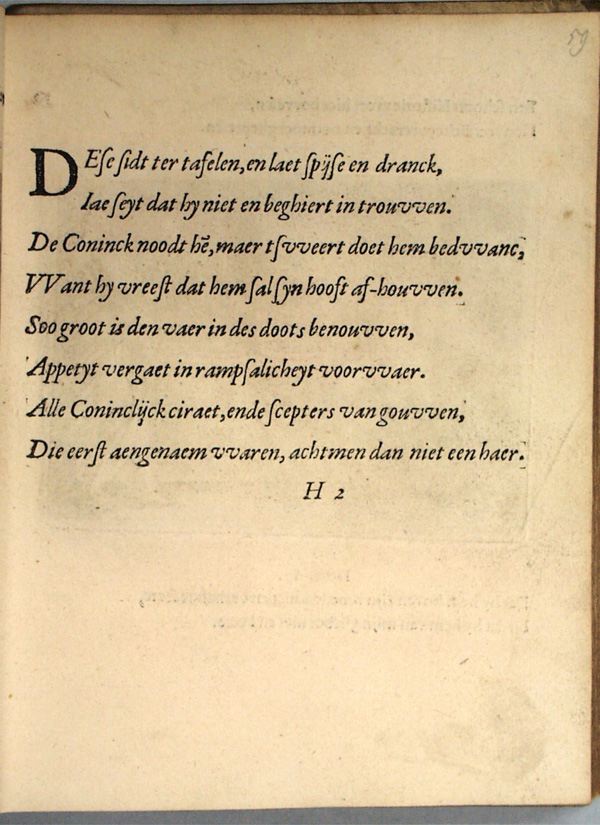 59
DEſe ſidt ter tafelen, en laet ſpijſe en dranck,
Iae ſeyt dat hy niet en beghiert in trouvven.
De Coninck noodt hẽ, maer tſvveert doet hem bedvvanc,
VVant hy vreeſt dat hem ſal ſyn hooft af-houvven.
Soo groot is den vaer in des doots benouvven,
Appetyt vergaet in rampſalicheyt voorvvaer.
Alle Coninclijck ciraet, ende ſcepters van gouvven,
Die eerſt aengenaem vvaren, achtmen dan niet een haer.
H 2